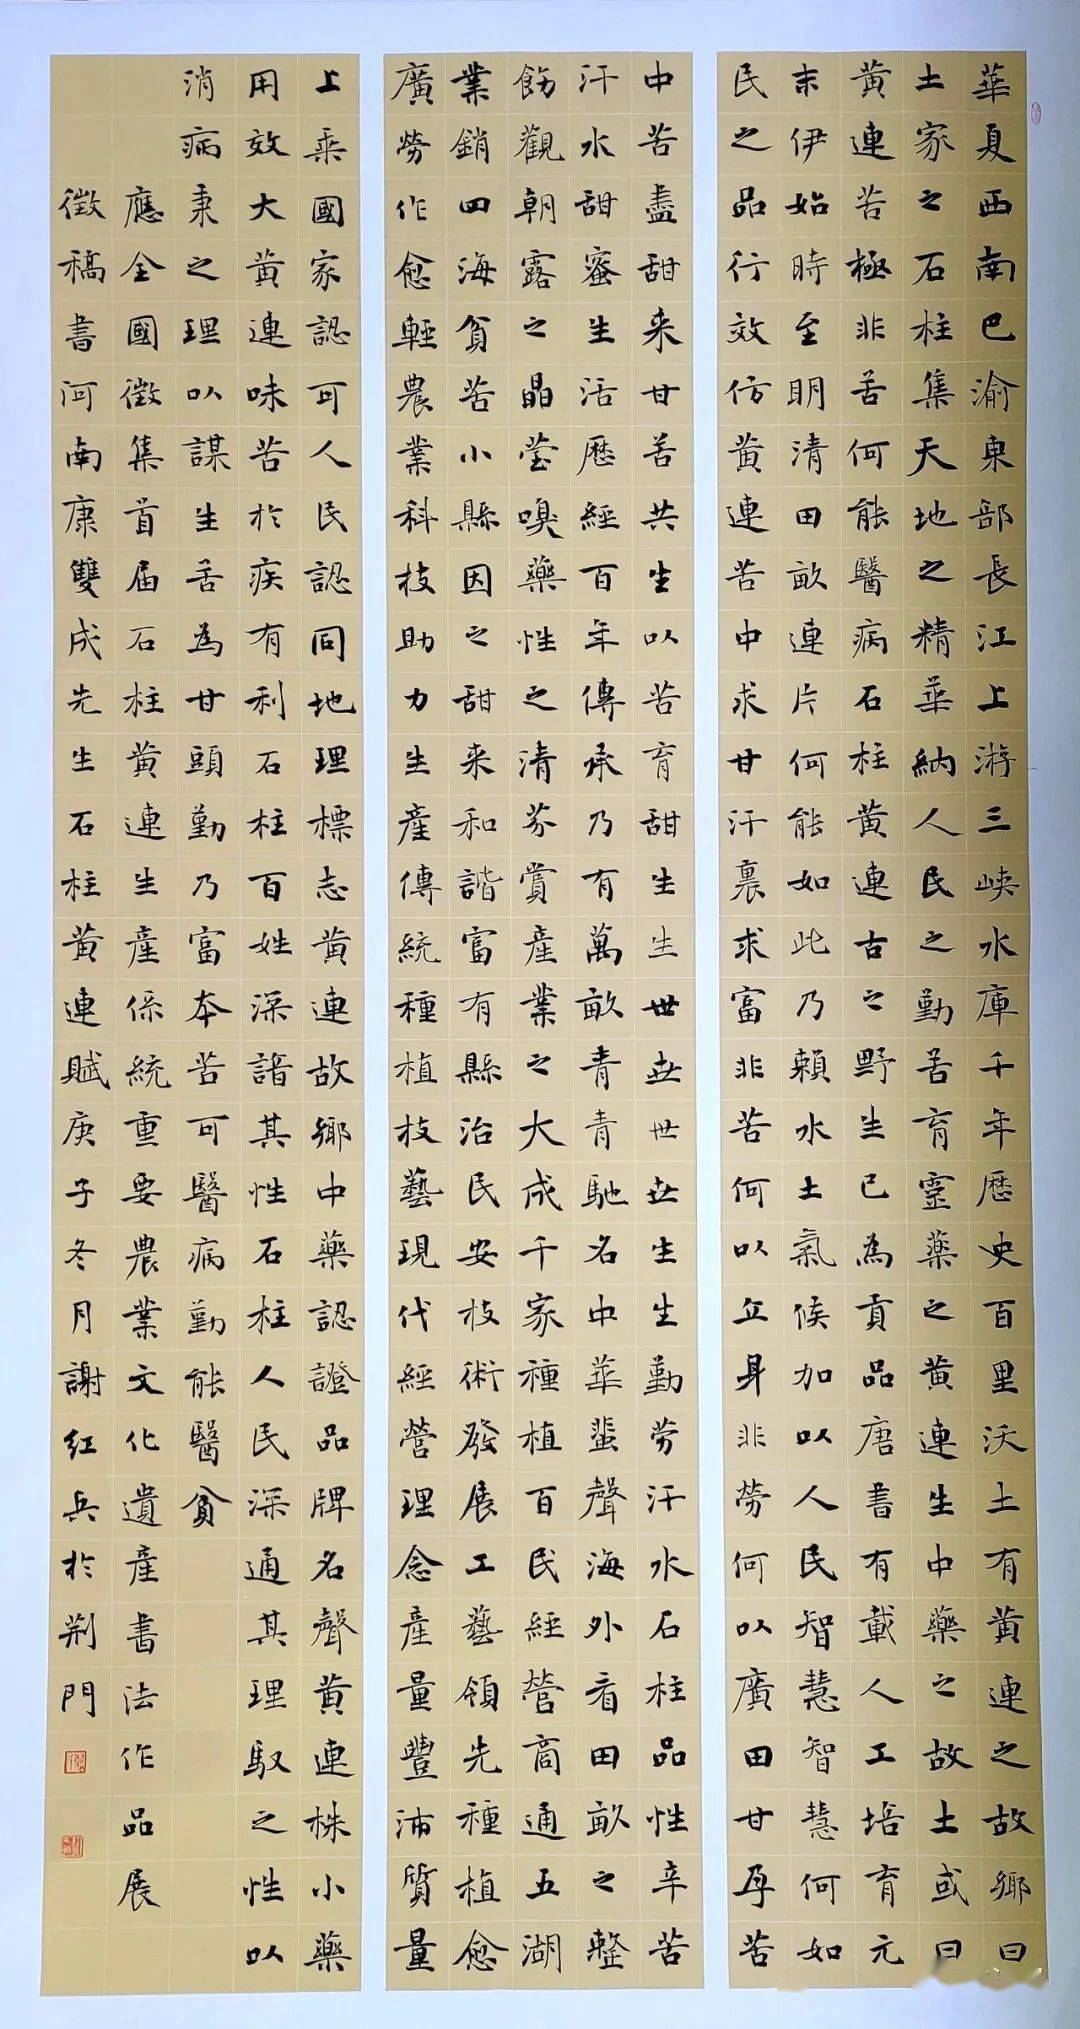 華夏西南巴渝東部長江上游三峽水庫千年歷史百里沃土有黃連之故鄉曰
土家之石柱集天地之精華納人民之勤苦育靈藥之黃連生中藥之故土或曰
黃連苦極非苦何能醫病石柱黃連古之野生已為貢品唐書有載人工培育元
末伊始時至明清田畝連片何能如此乃賴水土氣候加以人民智慧智慧何如
民之品行效仿黃連苦中求甘汗裏求富非苦何以立身非勞何以廣田甘孕苦
中苦盡甜来甘苦共生以苦育甜生生世世世世生生勤勞汗水石柱品性辛苦
汗水甜蜜生活歷經百年傳承乃有萬畝青青馳名中華蜚聲海外看田畝之整
飭觀朝露之晶瑩嗅藥性之清芬賞産業之大成千家種植百民經營商通五湖
業銷四海貧苦小縣因之甜来和諧富有縣治民安技術發展工藝領先種植愈
廣勞作愈輕農業科技助力生産傳統種植技藝現代經營理念産量豐沛質量
上乘國家認可人民認同地理標志黃連故鄉中藥認證品牌名聲黃連株小藥
用效大黃連味苦於疾有利石柱百姓深諳其性石柱人民深通其理馭之性以
消病秉之理以謀生苦為甘頭勤乃富本苦可醫病勤能醫貧
應全國徵集首届石柱黃連生産係統重要農業文化遺産書法作品展
徵稿書河南康雙成先生石柱黃連賦庚子冬月謝紅兵於荆門